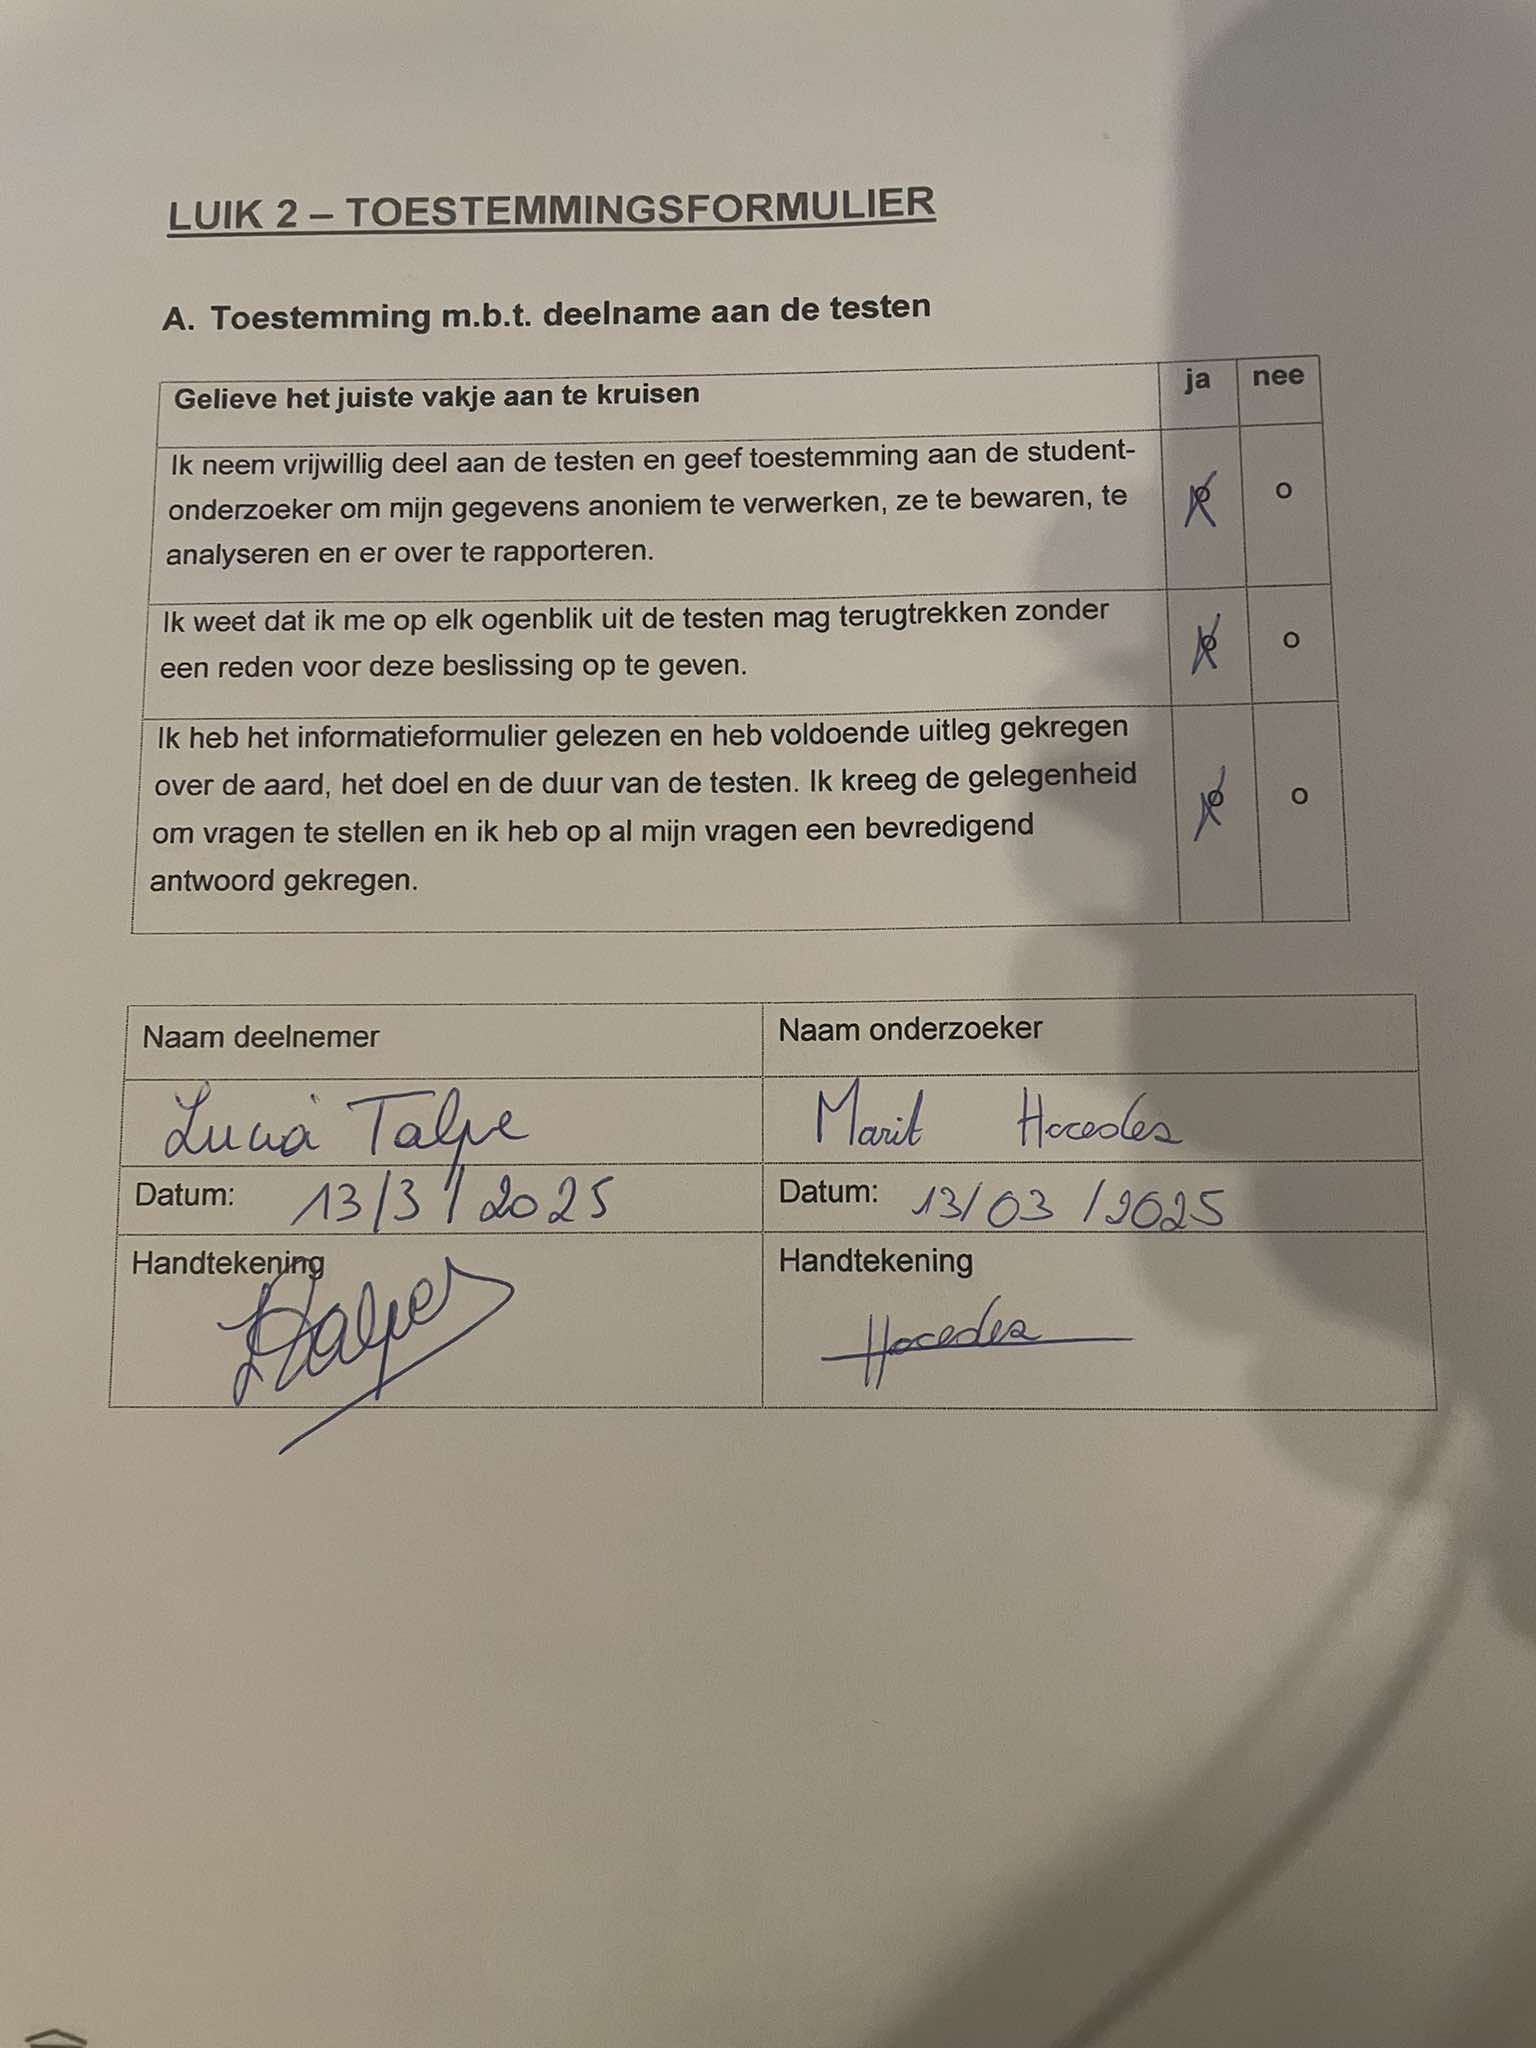 LUIK 2 – TOESTEMMINGSFORMULIER
A. Toestemming m.b.t. deelname aan de testen
Gelieve het juiste vakje aan te kruisen ja nee
Ik neem vrijwillig deel aan de testen en geef toestemming aan de student-
onderzoeker om mijn gegevens anoniem te verwerken, ze te bewaren, te
analyseren en er over te rapporteren.
o
Ik weet dat ik me op elk ogenblik uit de testen mag terugtrekken zonder
een reden voor deze beslissing op te geven.
o
Ik heb het informatieformulier gelezen en heb voldoende uitleg gekregen
over de aard, het doel en de duur van de testen. Ik kreeg de gelegenheid
om vragen te stellen en ik heb op al mijn vragen een bevredigend
antwoord gekregen.
o
Naam deelnemer Naam onderzoeker
Lucia Talpe Marit Hocedez
Datum: 13/3/2025 Datum: 13/03/2025
Handtekening Handtekening
Hocedez